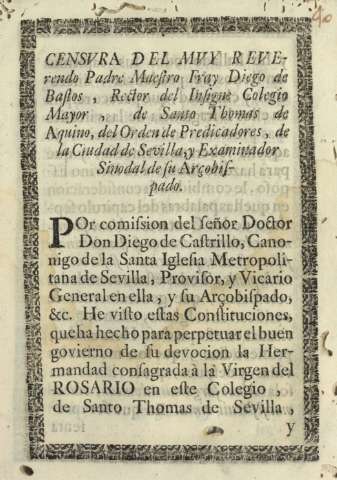 CENSVRA DEL MVY REVE-
rendo Padre Maestro Fray Diego de
Bastos, Rector del Insigne Colegio
Mayor, de Santo Thomas de
Aquino, del Orden de Predicadores, de
la Ciudad de Sevilla, y Examinador
Sinodal de su Arçobis-
pado.
POr comission del señor Doctor
Don Diego de Castrillo, Cano-
nigo de la Santa Iglesia Metropoli-
tana de Sevilla, Provisor, y Vicario
General en ella, y su Arçobispado,
&c. He visto estas Constituciones,
que ha hecho para perpetuar el buen
govierno de su devocion la Her-
mandad consagrada à la Virgen del
ROSARIO en este Colegio,
de Santo Thomas de Sevilla,
y